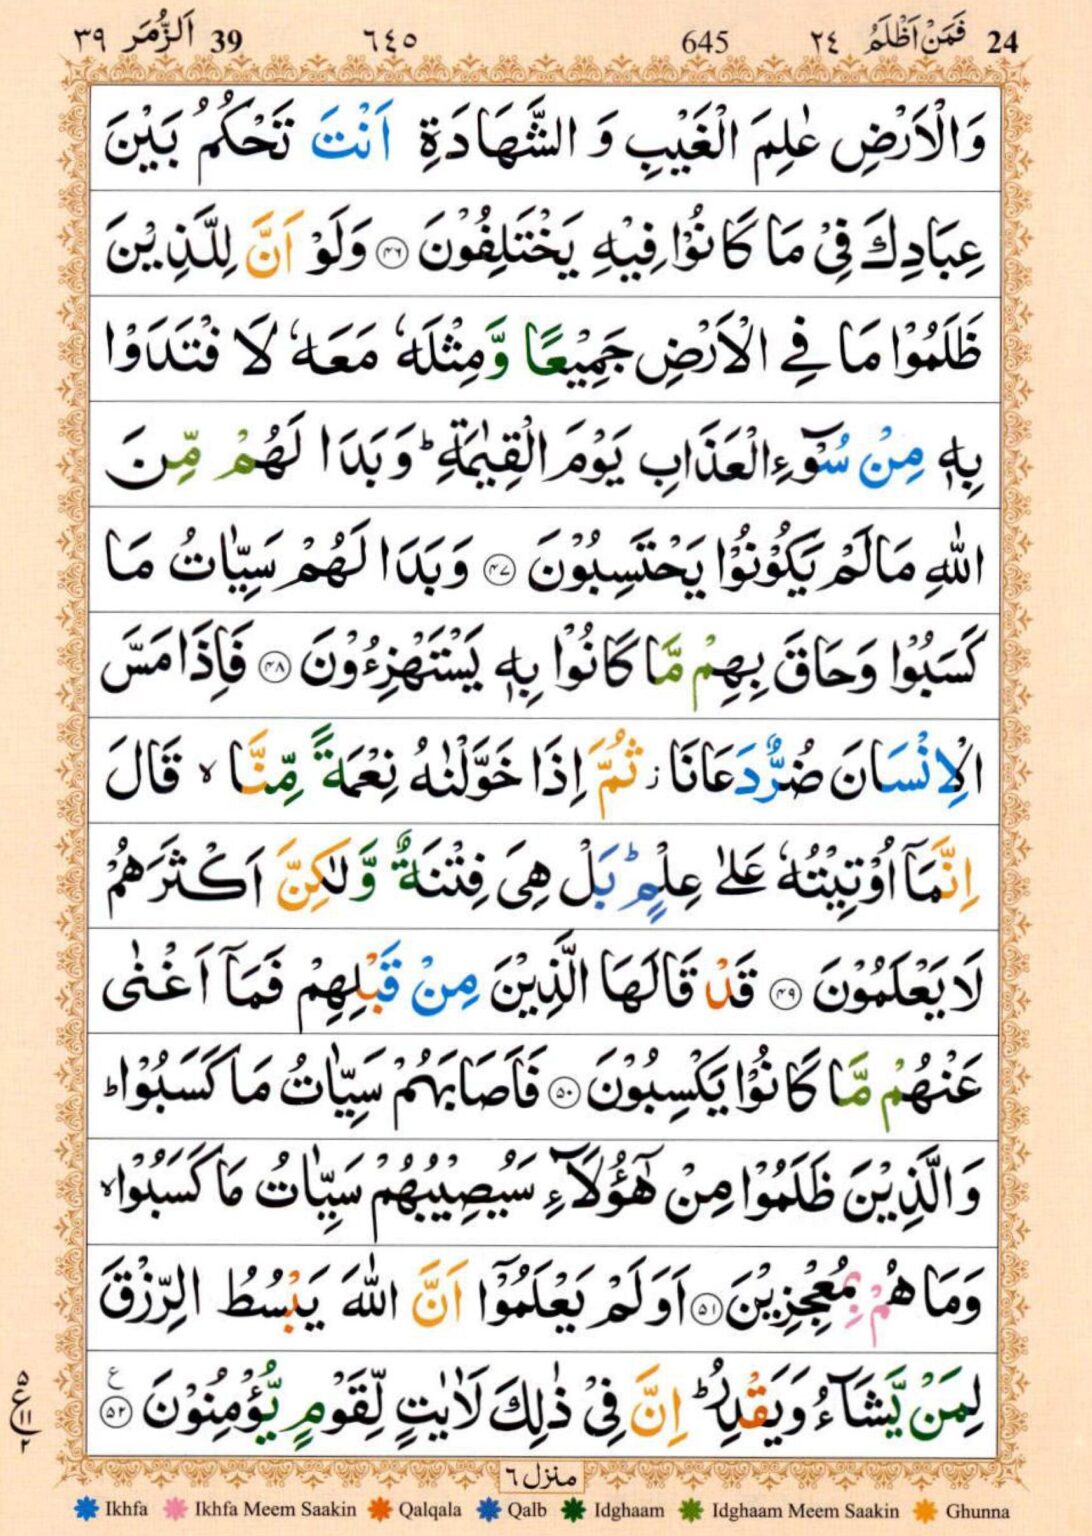 24 فَمَنْ اَظْلَمُ ٢٤ 645 ٦٤٥ 39 اَلزُّمَر ٣٩
وَالْاَرْضِ عٰلِمَ الْغَيْبِ وَ الشَّهَادَةِ اَنْتَ تَحْكُمُ بَيْنَ
عِبَادِكَ فِىْ مَا كَانُوْا فِيْهِ يَخْتَلِفُوْنَ ۝۴۶ وَلَوْ اَنَّ لِلَّذِيْنَ
ظَلَمُوْا مَا فِى الْاَرْضِ جَمِيْعًا وَّمِثْلَهٗ مَعَهٗ لَا فْتَدَوْا
بِهٖ مِنْ سُوْٓءِ الْعَذَابِ يَوْمَ الْقِيٰمَةِ ؕ وَبَدَا لَهُمْ مِّنَ
اللّٰهِ مَا لَمْ يَكُوْنُوْا يَحْتَسِبُوْنَ ۝۴۷ وَبَدَا لَهُمْ سَيِّاٰتُ مَا
كَسَبُوْا وَحَاقَ بِهِمْ مَّا كَانُوْا بِهٖ يَسْتَهْزِءُوْنَ ۝۴۸ فَاِذَا مَسَّ
الْاِنْسَانَ ضُرٌّ دَعَانَا ز ثُمَّ اِذَا خَوَّلْنٰهُ نِعْمَةً مِّنَّا ۙ قَالَ
اِنَّمَاۤ اُوْتِيْتُهٗ عَلٰى عِلْمٍ ؕ بَلْ هِىَ فِتْنَةٌ وَّلٰكِنَّ اَكْثَرَهُمْ
لَا يَعْلَمُوْنَ ۝۴۹ قَدْ قَالَهَا الَّذِيْنَ مِنْ قَبْلِهِمْ فَمَاۤ اَغْنٰى
عَنْهُمْ مَّا كَانُوْا يَكْسِبُوْنَ ۝۵۰ فَاَصَابَهُمْ سَيِّاٰتُ مَا كَسَبُوْا ؕ
وَالَّذِيْنَ ظَلَمُوْا مِنْ هٰٓؤُلَاۤءِ سَيُصِيْبُهُمْ سَيِّاٰتُ مَا كَسَبُوْا ۙ
وَمَا هُمْ بِمُعْجِزِيْنَ ۝۵۱ اَوَلَمْ يَعْلَمُوْۤا اَنَّ اللّٰهَ يَبْسُطُ الرِّزْقَ
لِمَنْ يَّشَآءُ وَيَقْدِرُ ؕ اِنَّ فِىْ ذٰلِكَ لَاٰيٰتٍ لِّقَوْمٍ يُّؤْمِنُوْنَ ۝۵۲ ع
۵
ع ۱۱
۲
منزل ٦
Ikhfa Ikhfa Meem Saakin Qalqala Qalb Idghaam Idghaam Meem Saakin Ghunna